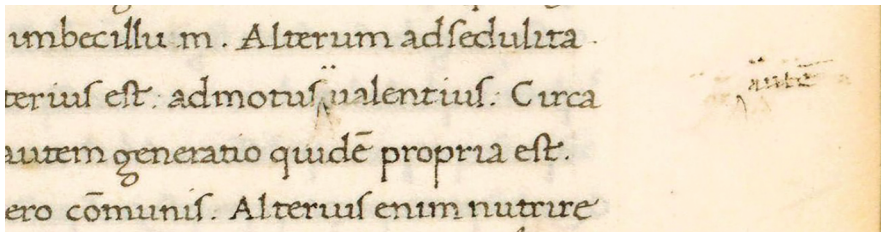 imbecillu m. Alterum adsedulita
terius est: admotus ualentius: Circa
autē
autem generatio quidē propria est.
ero cōmunis. Alterius enim nutrire